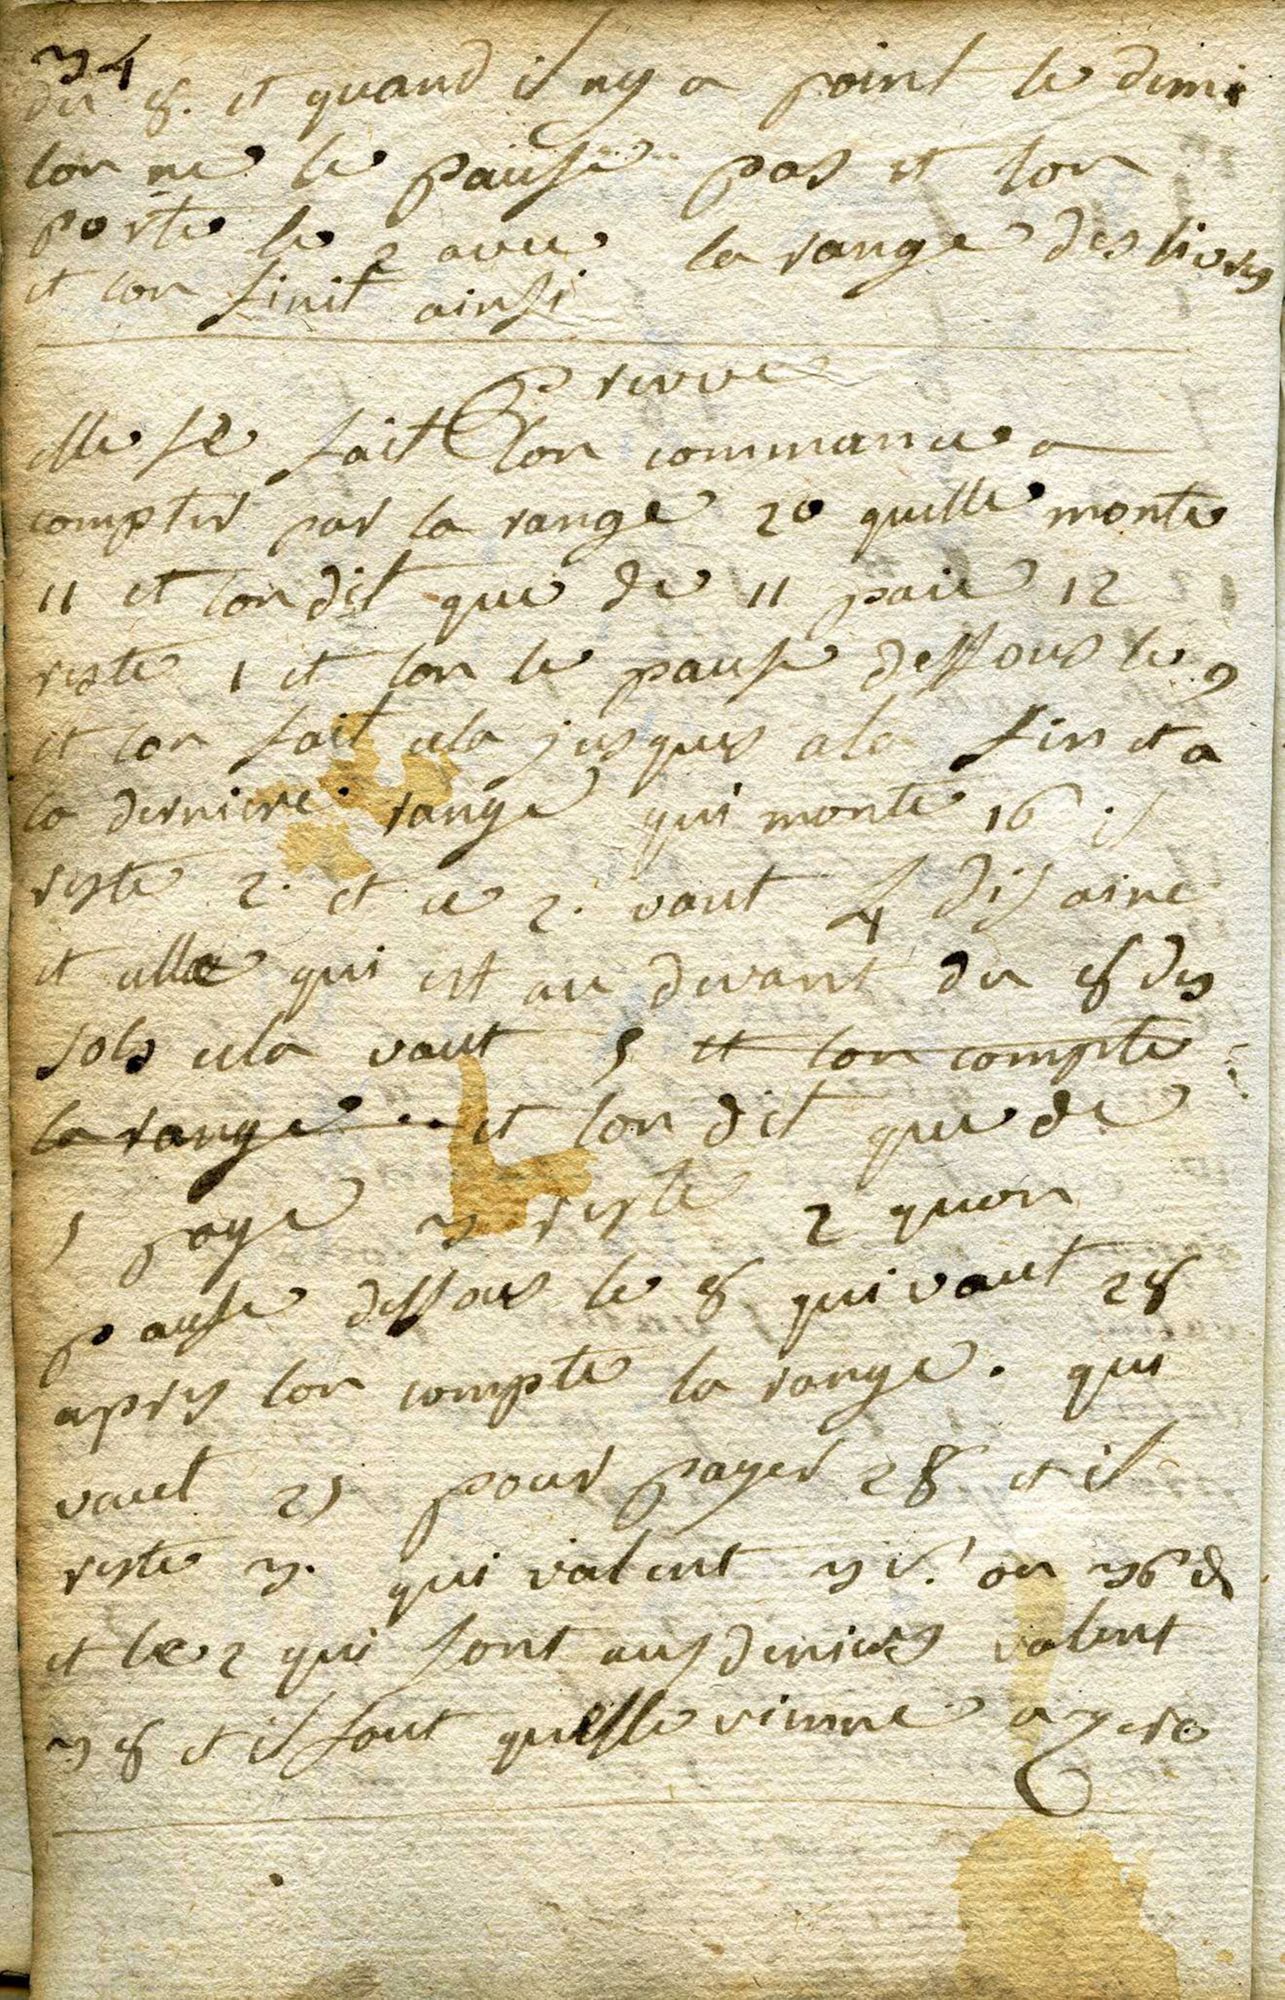 34
du 8. et quand il ny a point le dimi
lon ne le pause pas et lon
porte le 2 avec la range des livres
et lon finit ainsi
Preuve
elle se fait lon commance a
compter par la range 20 quelle monte
11 et lon dit que de 11 paie 12
reste 1 et lon le pause dessous le 9
et lon fait cela jusques a la fin et a
la derniere range qui monte 16 il
reste 2. et ce 2. vaut 4 disaine
et celle qui est au devant du 8 des
sols cela vaut 5 et lon compte
la range et lon dit que de
5 paye 3 reste 2 quon
pause dessous le 8 qui vaut 28
apres lon compte la range. qui
vaut 25 pour payer 28 et il
reste 3. qui valent 3 s. ou 36 d
et le 2 qui sont aus deniers valent
38 et il faut quelle vienne a zero